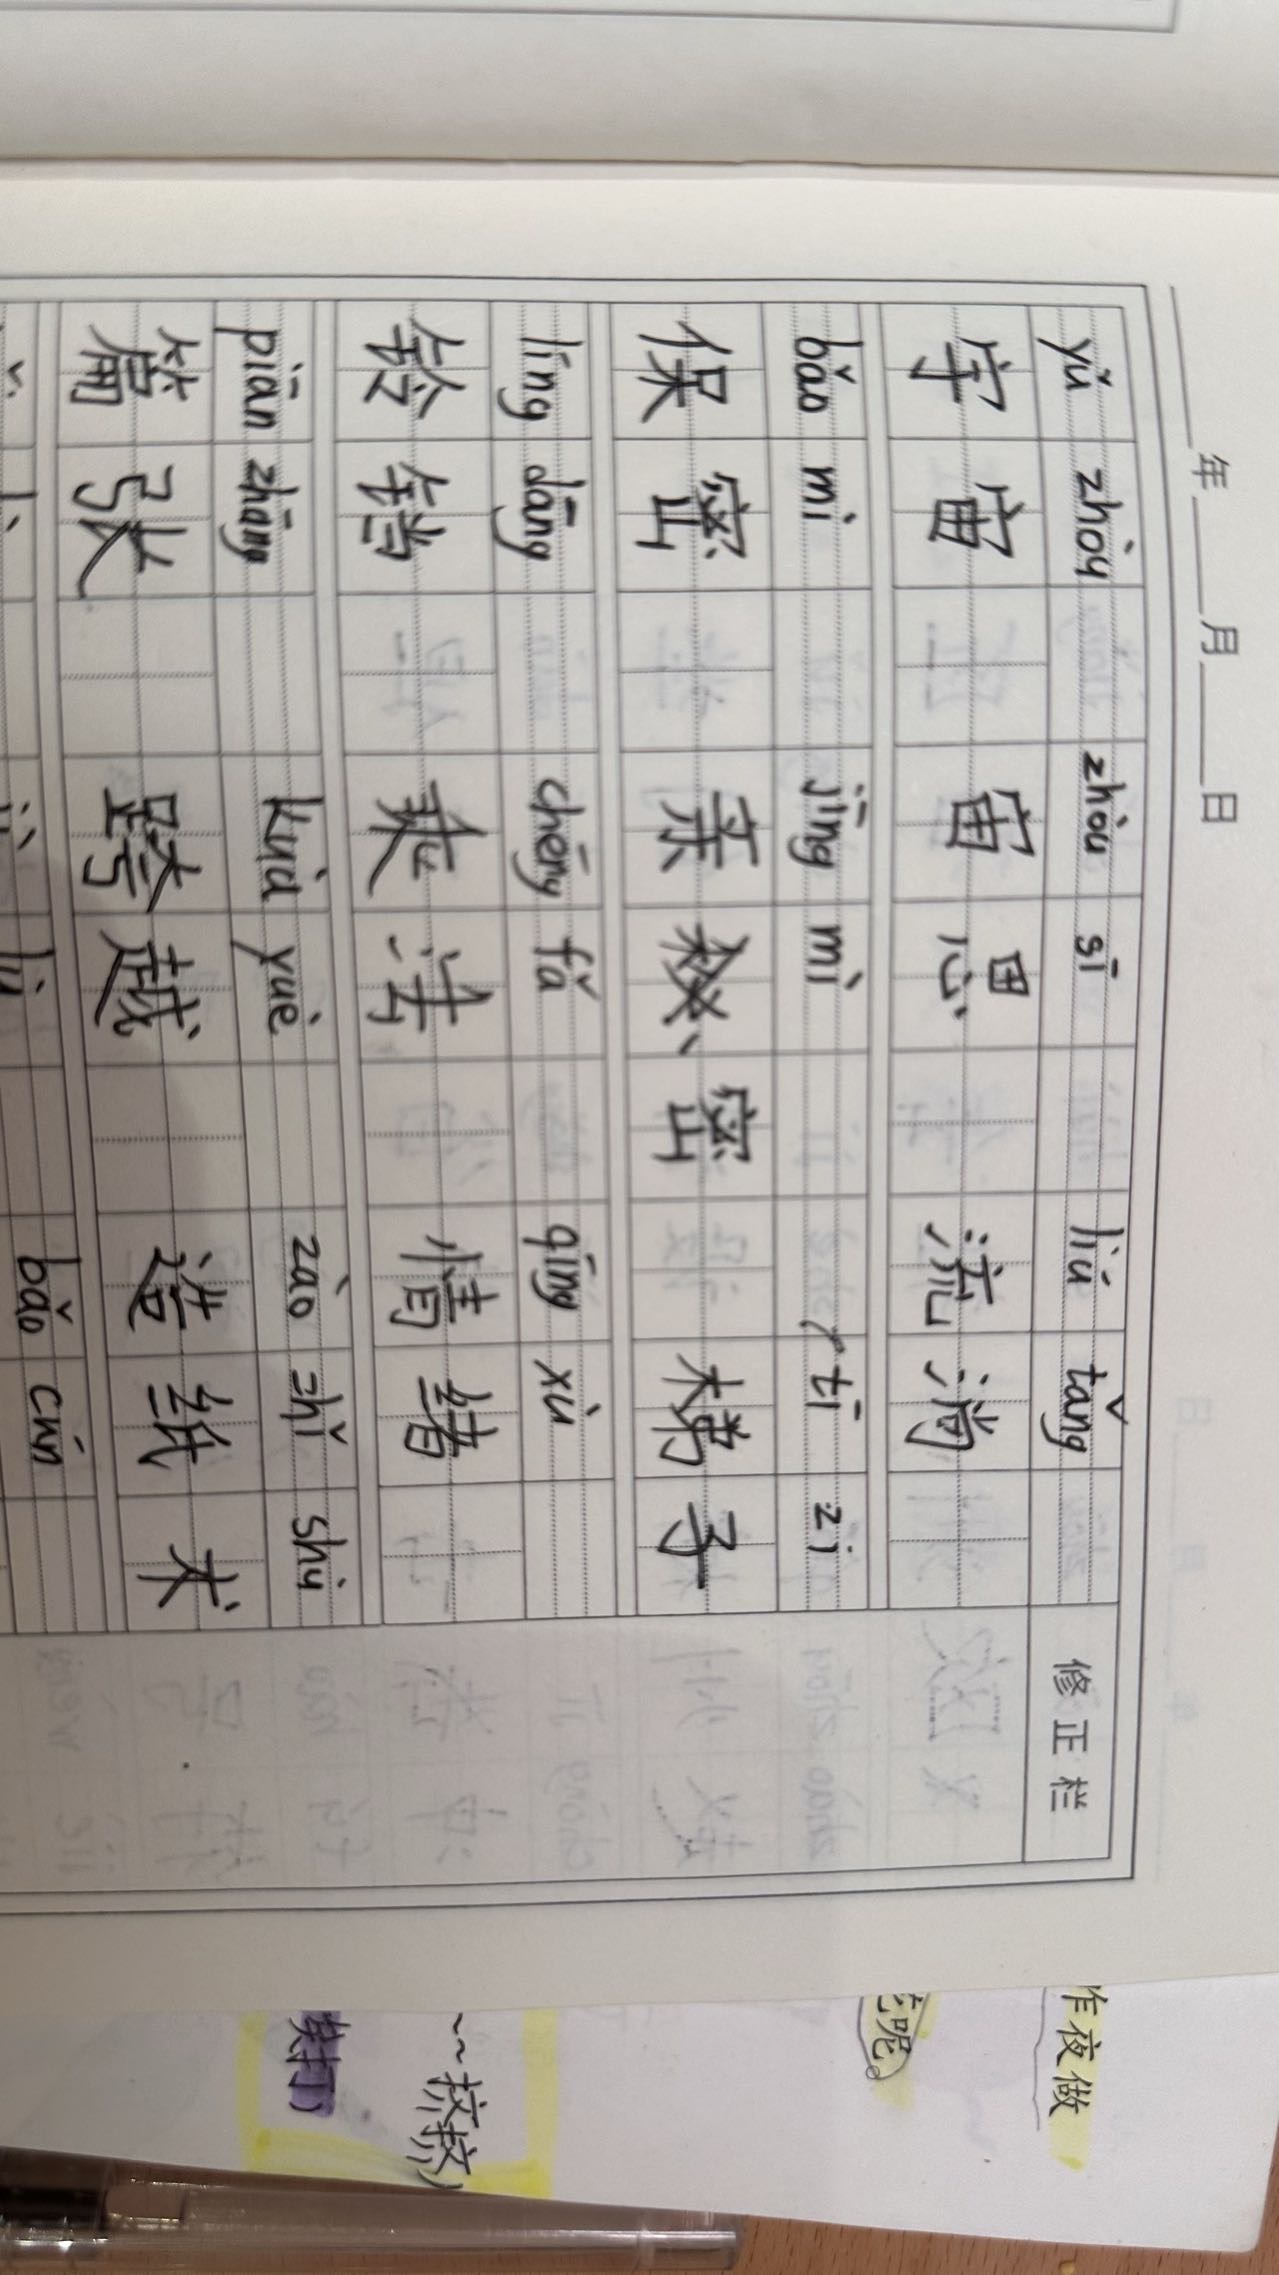 年 月 日
yǔ zhòu zhòu sī liú tǎng 修正栏
宇宙 宙思 流淌
bǎo mì jīng mì tī zi
保密 亲 密 梯子
líng dāng chéng fǎ qíng xù
铃铛 乘法 情绪
piān zhāng kuà yuè zào zhǐ shù
篇张 跨越 造纸术
bǎo cún
昨夜做
呢。
~~挤挤)